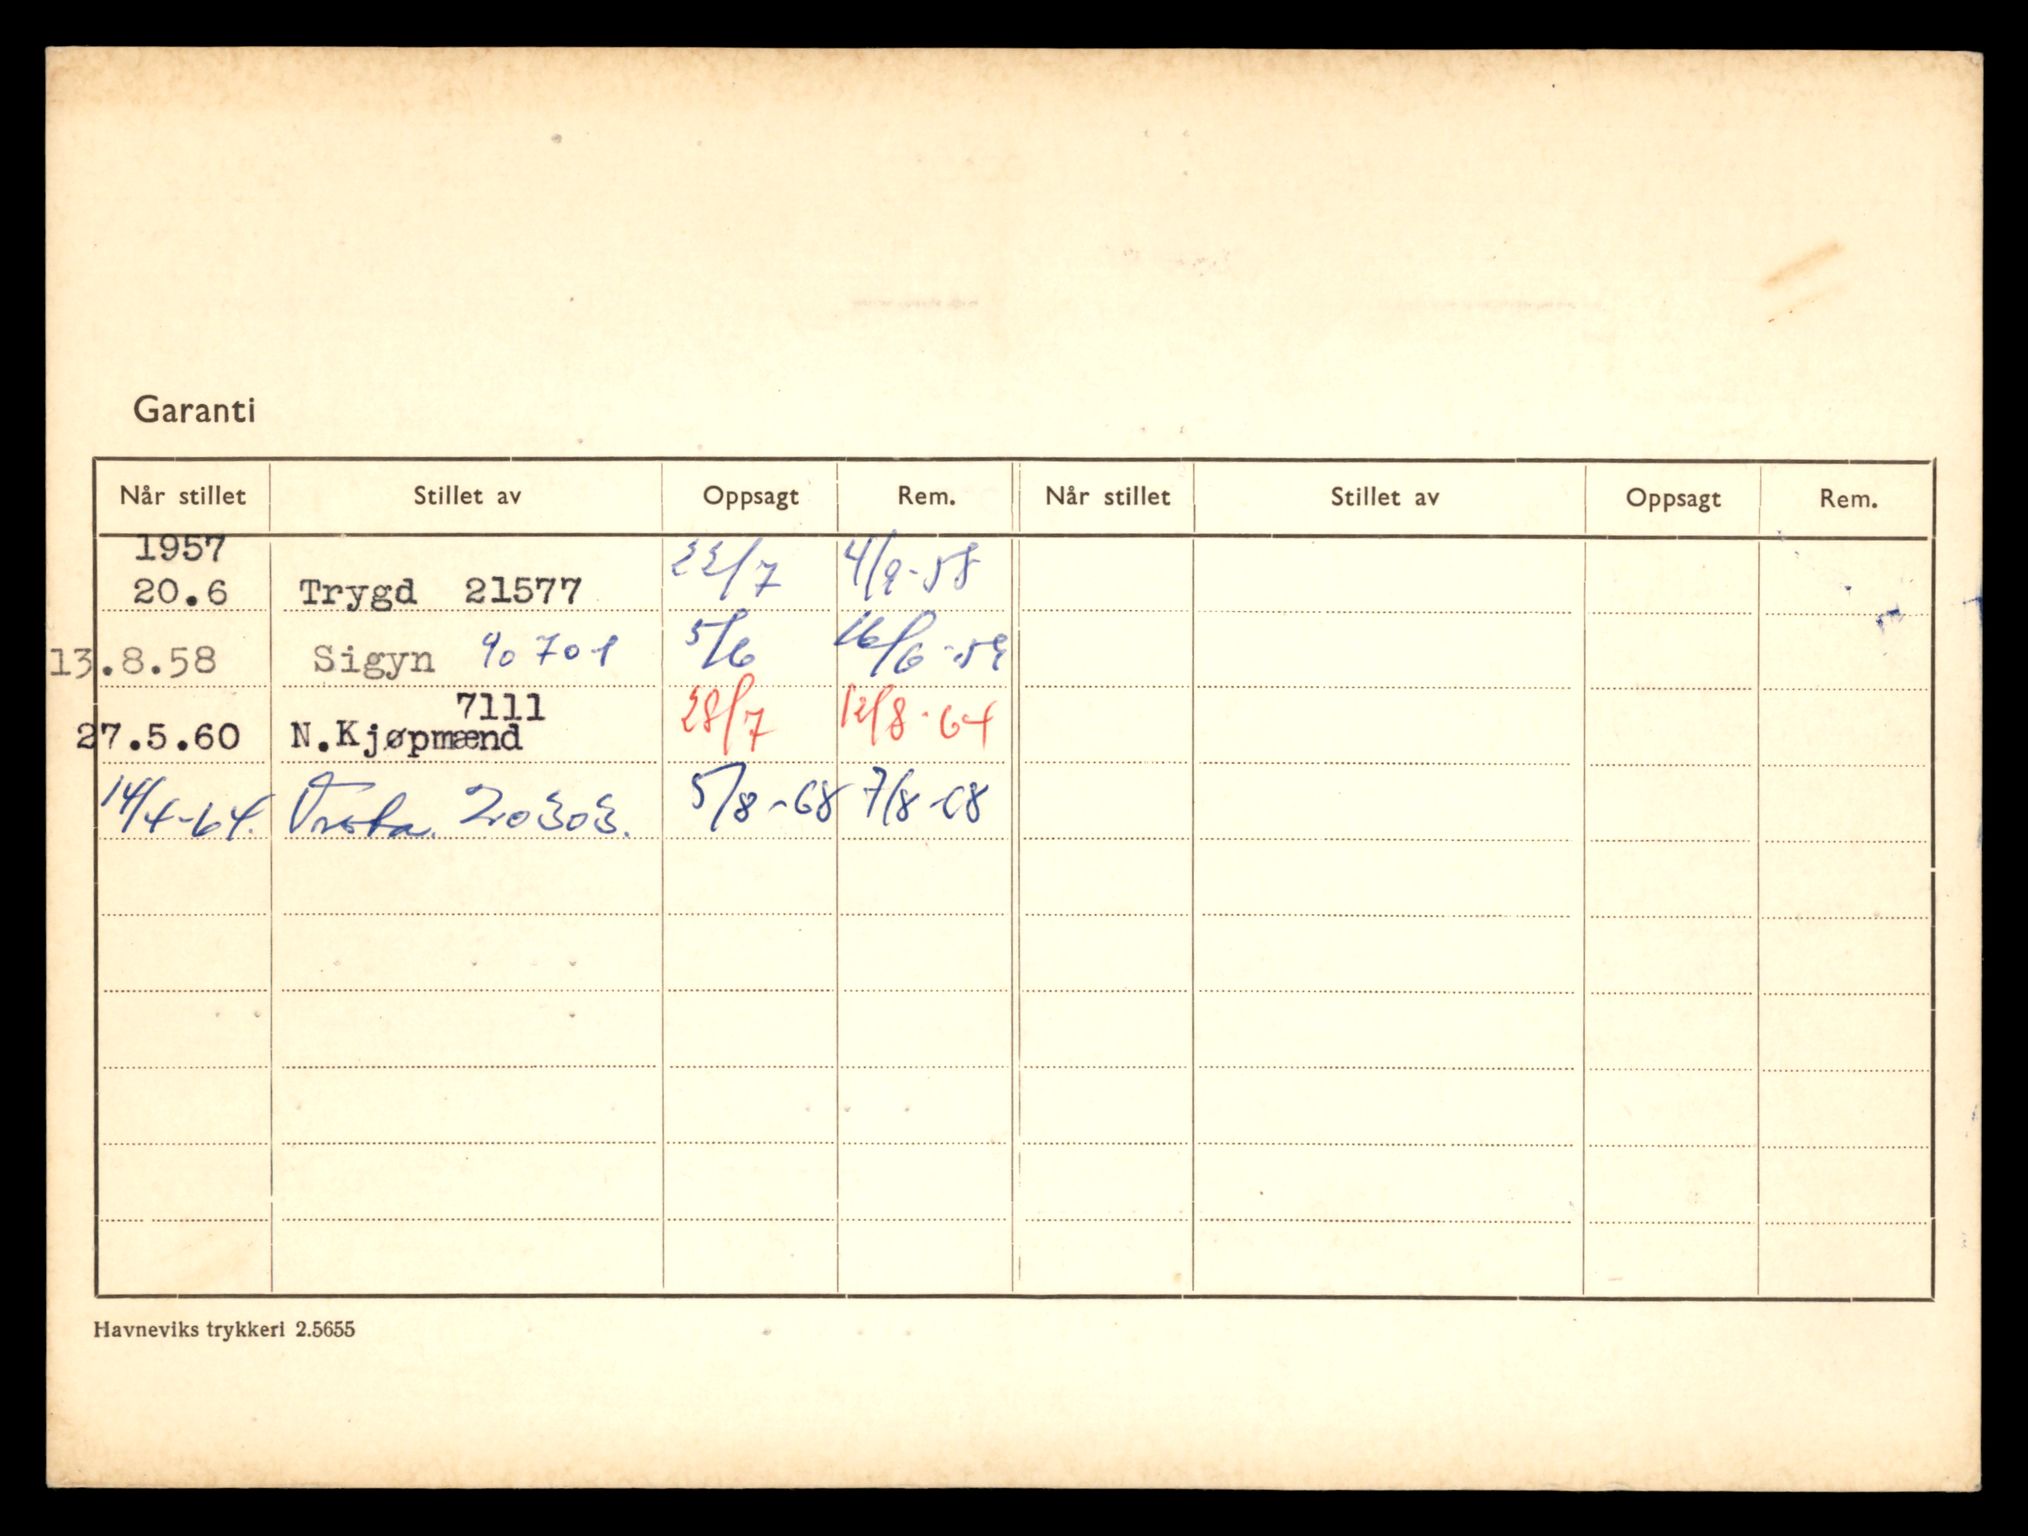 Garanti
Når stillet Stillet av Oppsagt Rem. Når stillet Stillet av Oppsagt Rem.
1957
20.6 Trygd 21577 22/7 4/9-58
13.8.58 Sigyn 90701 5/6 16/6-59
7111
27.5.60 N.Kjøpmænd 28/7 12/8-64
14/4-64. Ørsta. 20303. 5/8-68 7/8-68
Havneviks trykkeri 2.5655